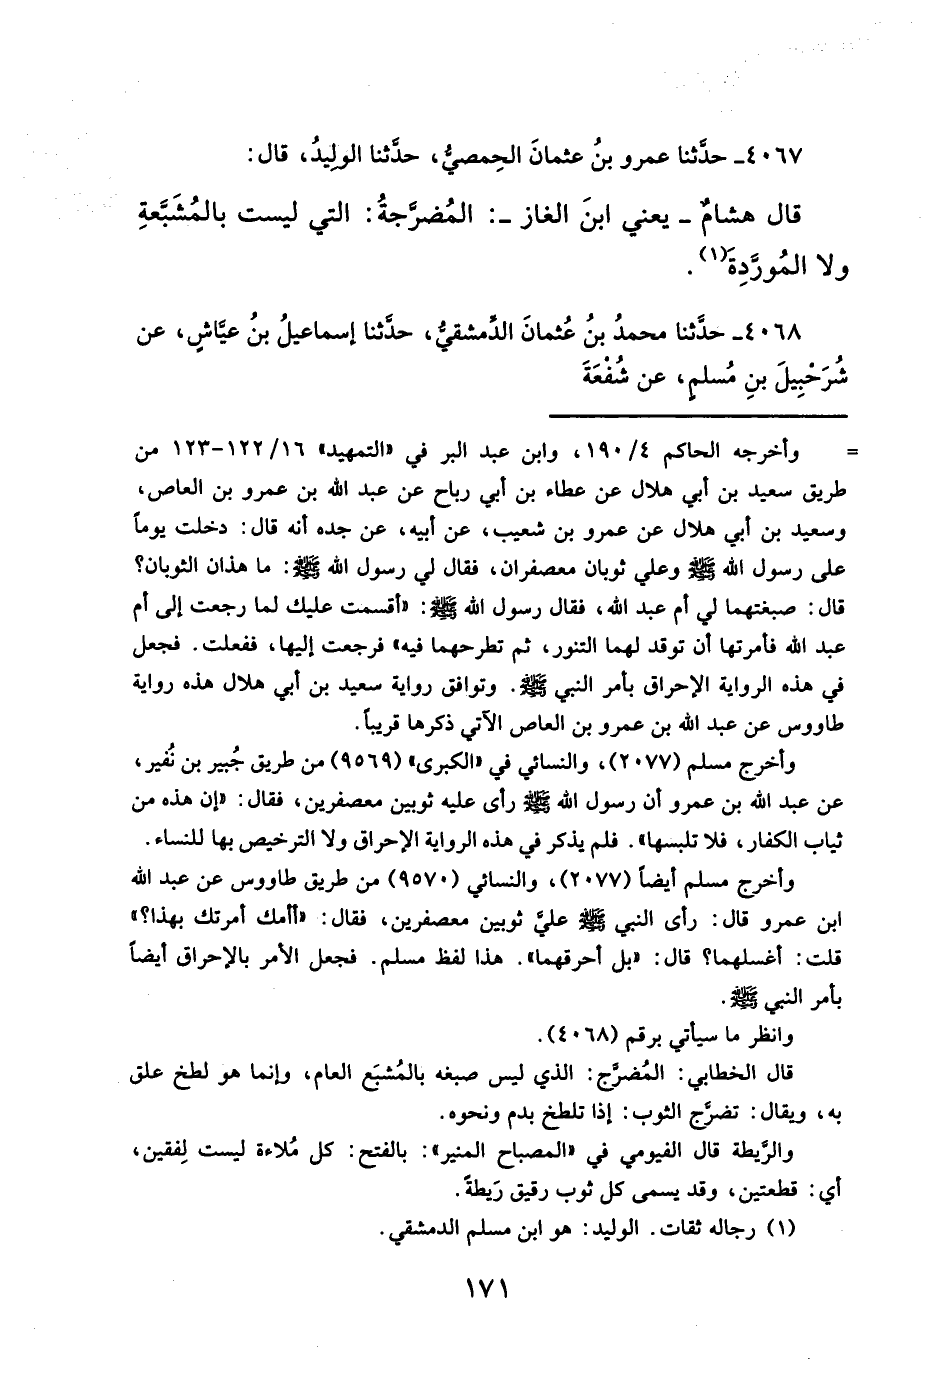 ٤٠٦٧ـ حدَّثنا عمرو بنُ عثمانَ الحِمصيُّ، حدَّثنا الولِيدُ، قال:
قال هشامٌ ـ يعني ابنَ الغاز ـ: المُضرَّجةُ: التي ليست بالمُشَبَّعةِ
ولا المُورَّدِةَ(١).
٤٠٦٨ـ حدَّثنا محمدُ بنُ عُثمانَ الدِّمشقيُّ، حدَّثنا إسماعيلُ بنُ عيَّاشٍ، عن
شُرَحْبِيلَ بنِ مُسلمٍ، عن شُفْعَةَ
= وأخرجه الحاكم ٤/ ١٩٠، وابن عبد البر في «التمهيد» ١٦/ ١٢٢-١٢٣ من
طريق سعيد بن أبي هلال عن عطاء بن أبي رباح عن عبد الله بن عمرو بن العاص،
وسعيد بن أبي هلال عن عمرو بن شعيب، عن أبيه، عن جده أنه قال: دخلت يوماً
على رسول الله ﷺ وعلي ثوبان معصفران، فقال لي رسول الله ﷺ: ما هذان الثوبان؟
قال: صبغتهما لي أم عبد الله، فقال رسول الله ﷺ: «أقسمت عليك لما رجعت إلى أم
عبد الله فأمرتها أن توقد لهما التنور، ثم تطرحهما فيه» فرجعت إليها، ففعلت. فجعل
في هذه الرواية الإحراق بأمر النبي ﷺ. وتوافق رواية سعيد بن أبي هلال هذه رواية
طاووس عن عبد الله بن عمرو بن العاص الآتي ذكرها قريباً.
وأخرج مسلم (٢٠٧٧)، والنسائي في «الكبرى» (٩٥٦٩) من طريق جُبير بن نُفير،
عن عبد الله بن عمرو أن رسول الله ﷺ رأى عليه ثوبين معصفرين، فقال: «إن هذه من
ثياب الكفار، فلا تلبسها». فلم يذكر في هذه الرواية الإحراق ولا الترخيص بها للنساء.
وأخرج مسلم أيضاً (٢٠٧٧)، والنسائي (٩٥٧٠) من طريق طاووس عن عبد الله
ابن عمرو قال: رأى النبي ﷺ عليَّ ثوبين معصفرين، فقال: «أأمك أمرتك بهذا؟»
قلت: أغسلهما؟ قال: «بل أحرقهما». هذا لفظ مسلم. فجعل الأمر بالإحراق أيضاً
بأمر النبي ﷺ.
وانظر ما سيأتي برقم (٤٠٦٨).
قال الخطابي: المُضرَّج: الذي ليس صبغه بالمُشبَع العام، وإنما هو لطخ علق
به، ويقال: تضرَّج الثوب: إذا تلطخ بدم ونحوه.
والرَّيطة قال الفيومي في «المصباح المنير»: بالفتح: كل مُلاءة ليست لِفقين،
أي: قطعتين، وقد يسمى كل ثوب رقيق رَيطةً.
(١) رجاله ثقات. الوليد: هو ابن مسلم الدمشقي.
١٧١